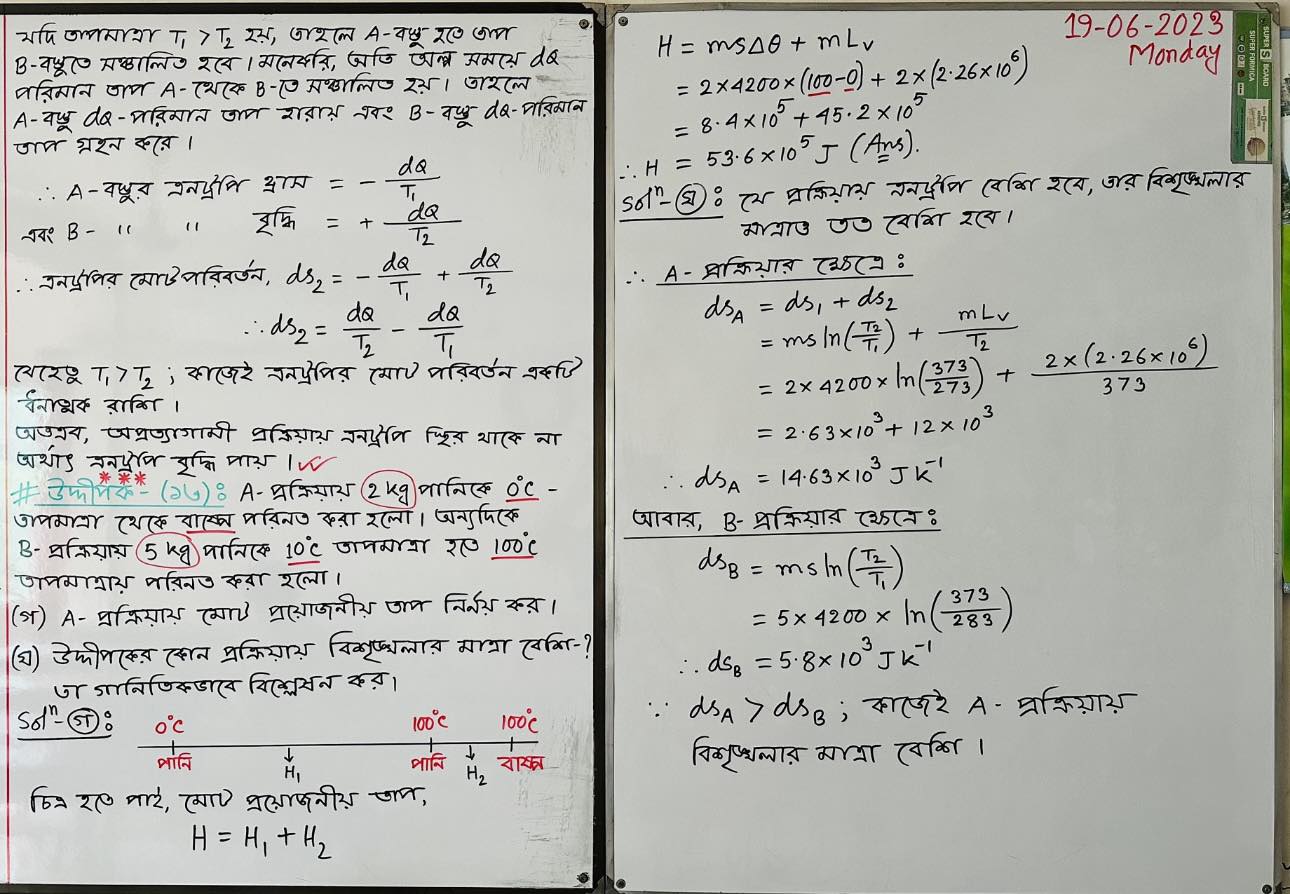 যদি তাপমাত্রা T₁ > T₂ হয়, তাহলে A-বস্তু হতে তাপ
B-বস্তুতে সঞ্চালিত হবে। মনেকরি, অতি অল্প সময়ে dQ
পরিমান তাপ A- থেকে B-তে সঞ্চালিত হয়। তাহলে
A-বস্তু dQ-পরিমান তাপ হারায় এবং B- বস্তু dQ-পরিমান
তাপ গ্রহন করে।
∴ A-বস্তুর এনট্রপি হ্রাস = - dQ/T₁
এবং B- " " বৃদ্ধি = + dQ/T₂
∴ এনট্রপির মোট পরিবর্তন, ds₂ = - dQ/T₁ + dQ/T₂
∴ ds₂ = dQ/T₂ - dQ/T₁
যেহেতু T₁ > T₂ ; কাজেই এনট্রপির মোট পরিবর্তন একটি
ধনাত্মক রাশি।
অতএব, অপ্রত্যাগামী প্রক্রিয়ায় এনট্রপি স্থির থাকে না
অর্থাৎ এনট্রপি বৃদ্ধি পায়।
***
# উদ্দীপক- (১৬): A-প্রক্রিয়ায় 2 kg পানিকে 0°c -
তাপমাত্রা থেকে বাষ্পে পরিনত করা হলো। অন্যদিকে
B- প্রক্রিয়ায় 5 kg পানিকে 10°c তাপমাত্রা হতে 100°c
তাপমাত্রায় পরিনত করা হলো।
(গ) A- প্রক্রিয়ায় মোট প্রয়োজনীয় তাপ নির্নয় কর।
(ঘ) উদ্দীপকের কোন প্রক্রিয়ায় বিশৃঙ্খলার মাত্রা বেশি-?
তা গানিতিকভাবে বিশ্লেষন কর।
Solⁿ-(গ):
0°c 100°c 100°c
পানি H₁ পানি H₂ বাষ্প
চিত্র হতে পাই, মোট প্রয়োজনীয় তাপ,
H = H₁ + H₂
19-06-2023
Monday
SUPER S BOARD
SUPER FORMICA
H = msΔθ + mLᵥ
= 2×4200×(100-0) + 2×(2.26×10⁶)
= 8.4×10⁵ + 45.2×10⁵
∴ H = 53.6×10⁵ J (Ans).
Solⁿ-(ঘ): যে প্রক্রিয়ায় এনট্রপি বেশি হবে, তার বিশৃঙ্খলার
মাত্রাও তত বেশি হবে।
∴ A-প্রক্রিয়ার ক্ষেত্রে:
ds_A = ds₁ + ds₂
= ms ln(T₂/T₁) + mLᵥ/T₂
= 2×4200×ln(373/273) + 2×(2.26×10⁶)/373
= 2.63×10³ + 12×10³
∴ ds_A = 14.63×10³ Jk⁻¹
আবার, B-প্রক্রিয়ার ক্ষেত্রে:
ds_B = ms ln(T₂/T₁)
= 5×4200×ln(373/283)
∴ ds_B = 5.8×10³ Jk⁻¹
∵ ds_A > ds_B ; কাজেই A- প্রক্রিয়ায়
বিশৃঙ্খলার মাত্রা বেশি।